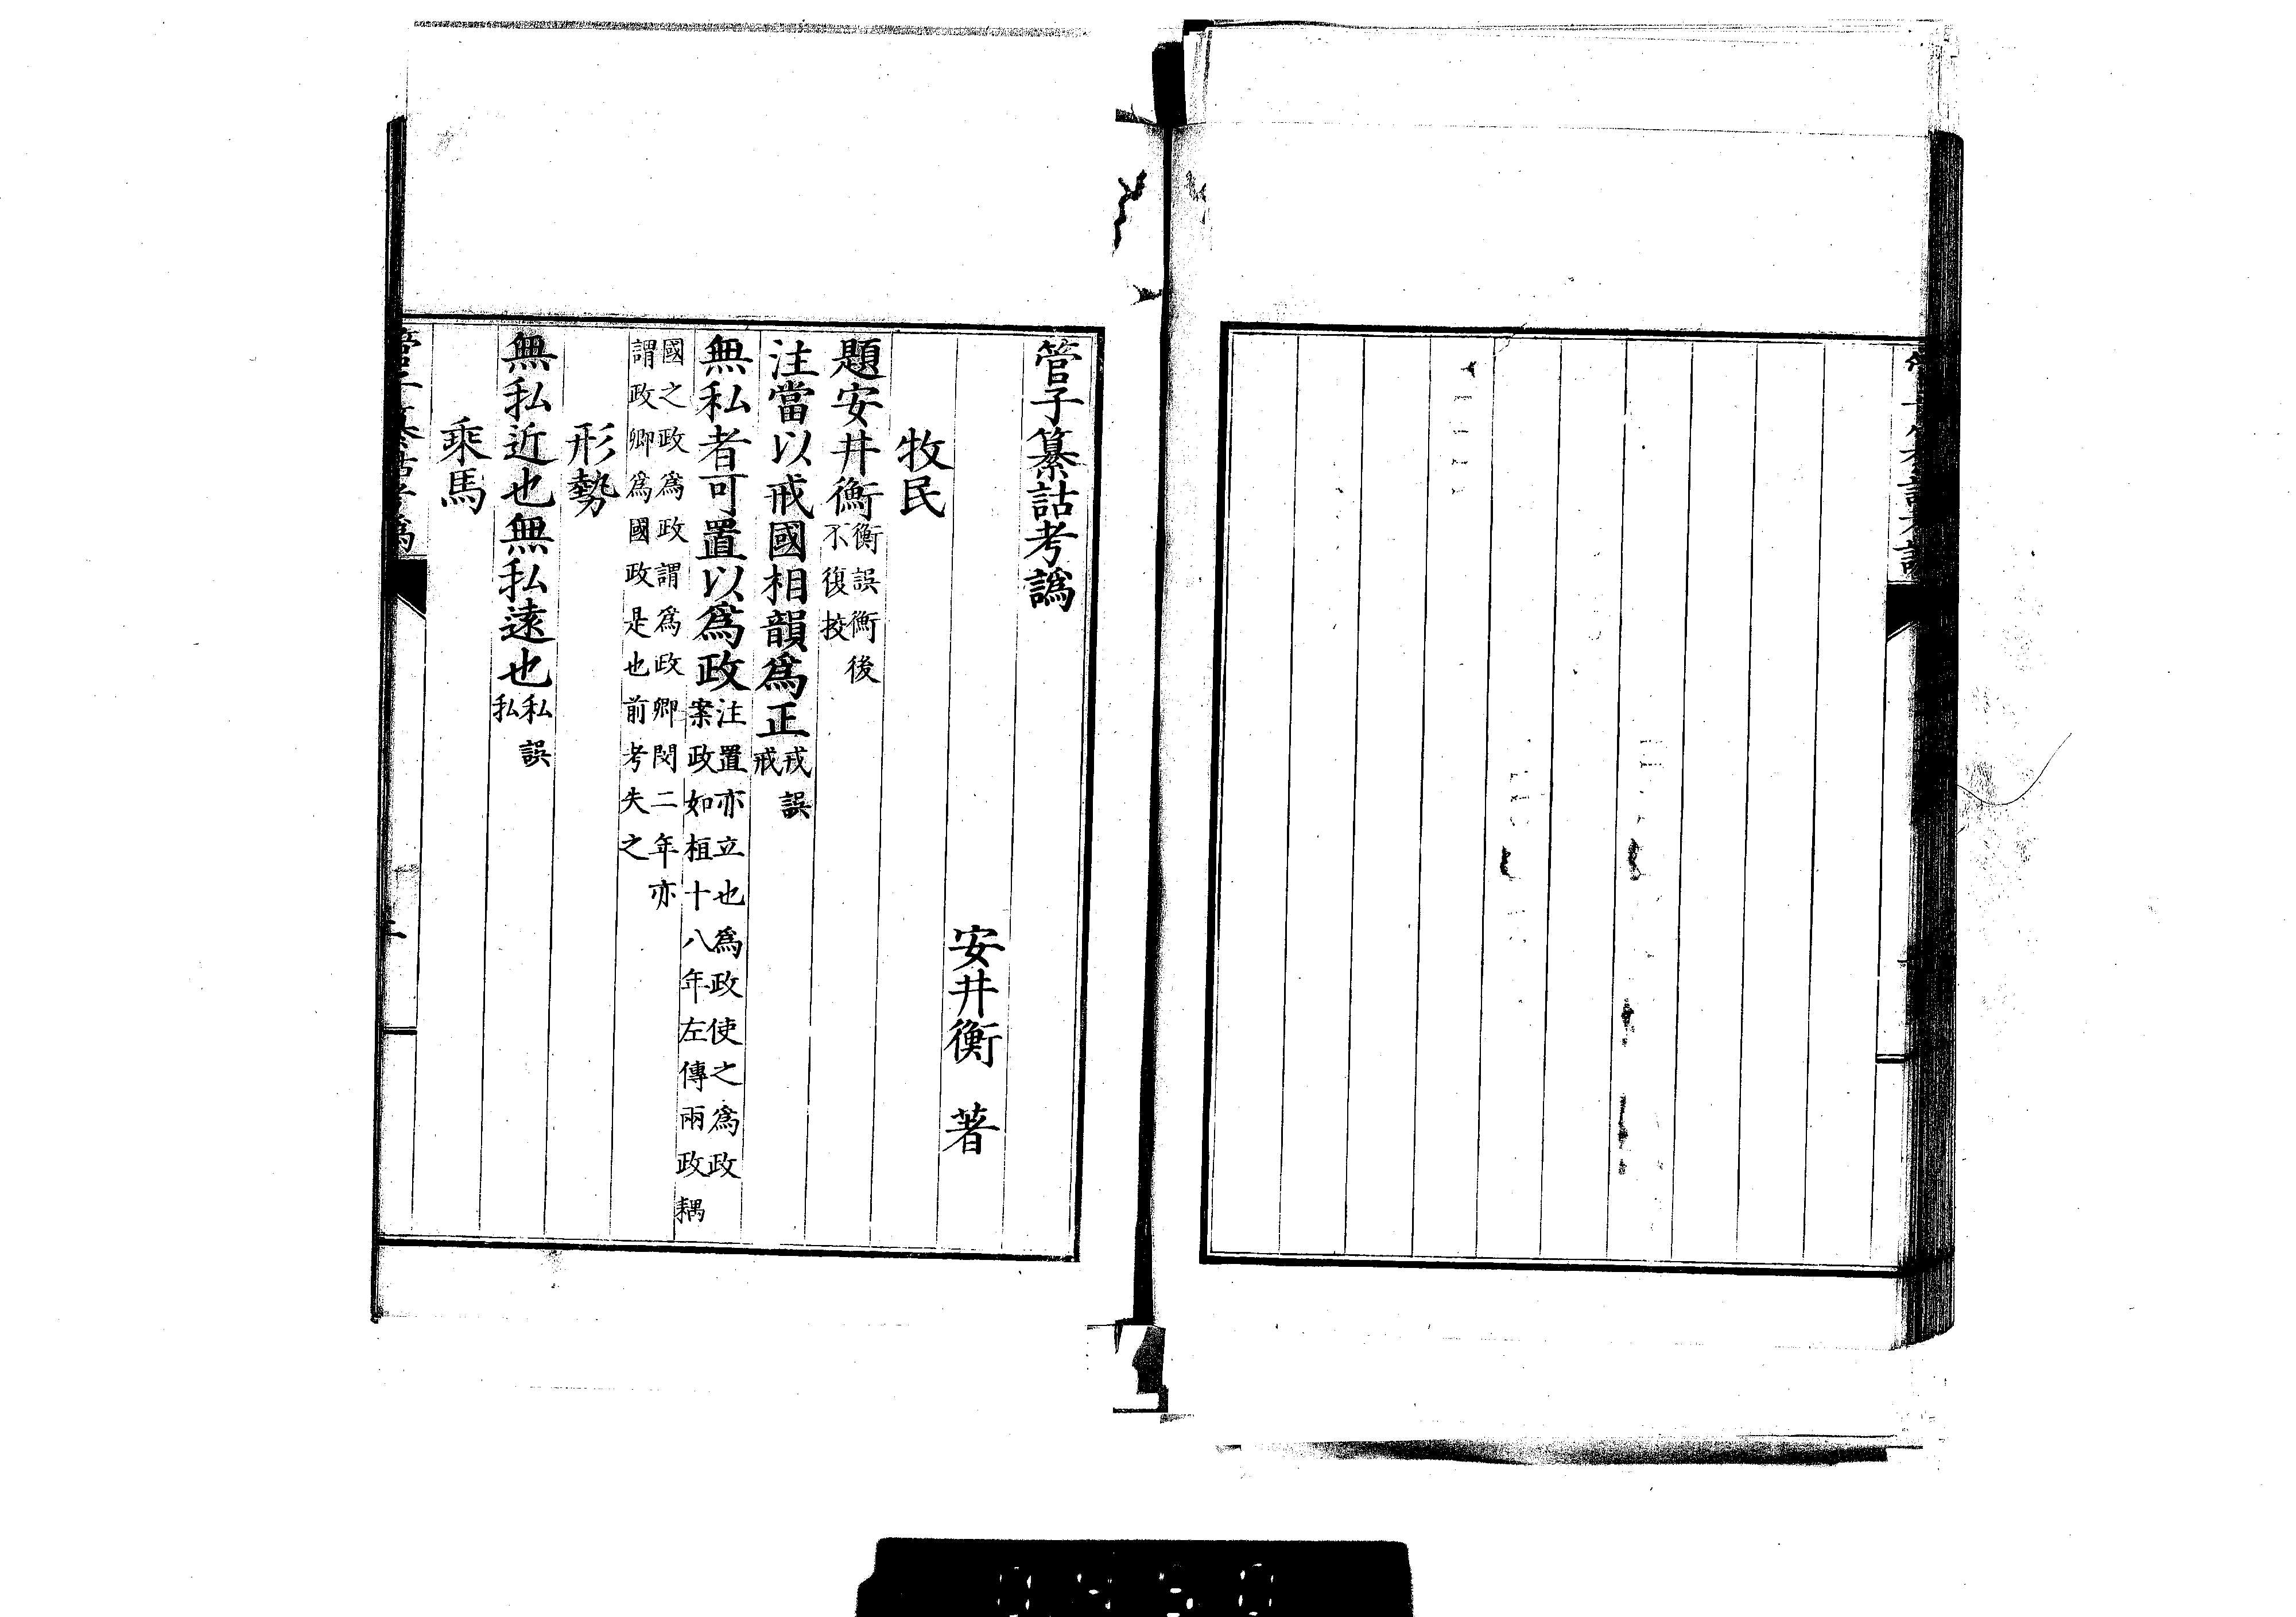 管子纂詁考譌
安井衡　著
牧民
題安井衡衡誤衡後不復挍
注當以戒國相韻爲正戎誤戒
無私者可置以爲政注置亦立也爲政使之爲政案政如桓十八年左傳兩政耦
國之政爲政謂爲政卿閔二年亦謂政卿爲國政是也前考失之
形勢
無私近也無私遠也私誤私
乘馬